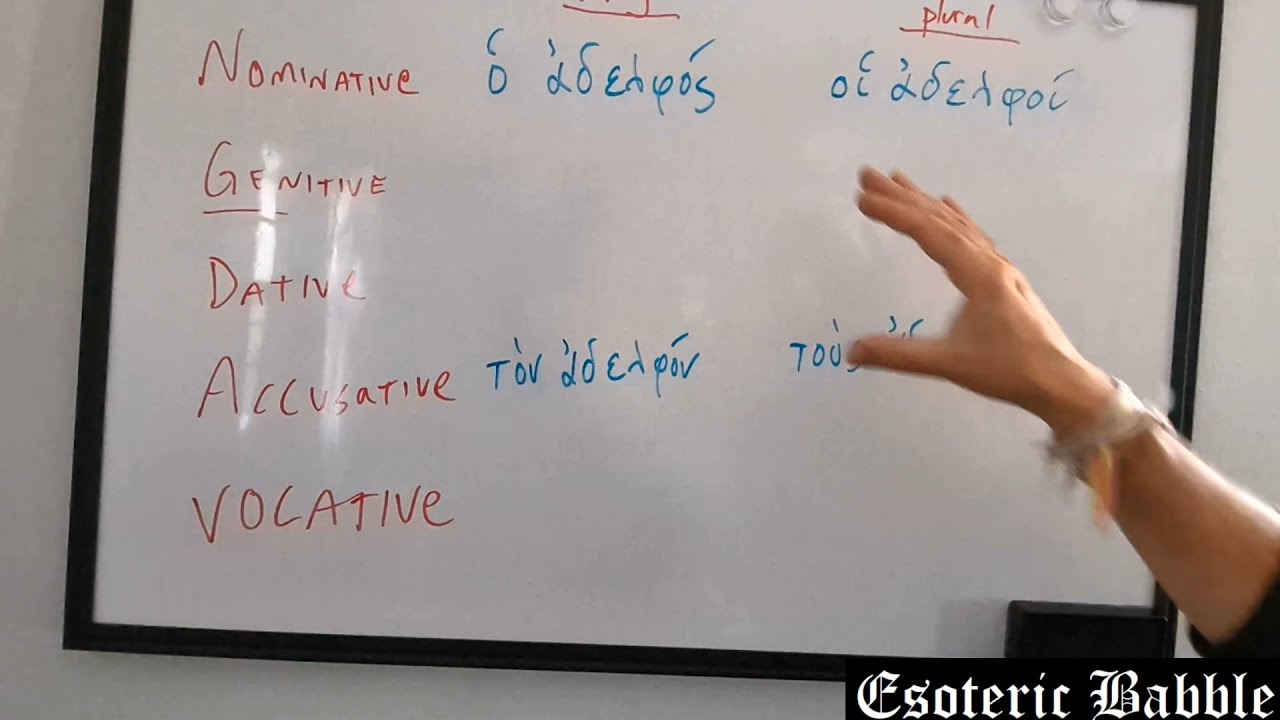 plural
Nominative ὁ ἀδελφός οἱ ἀδελφοί
Genitive
Dative
Accusative τὸν ἀδελφόν τοὺς
VOCATIVE
Esoteric Babble